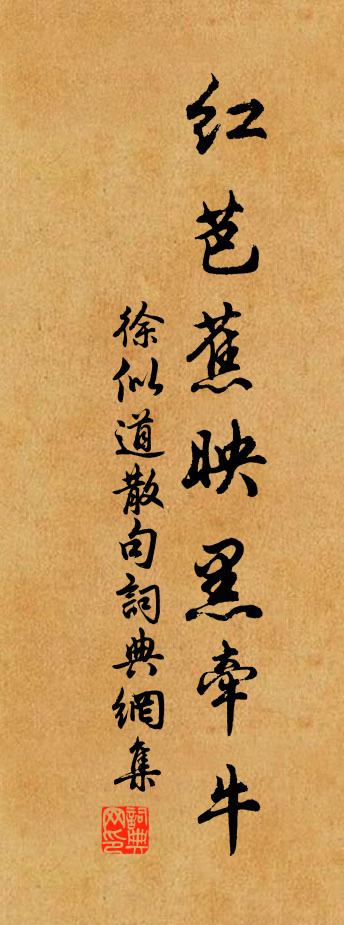 红芭蕉映黑牵牛
徐似道散句詞典網集
詞典网印